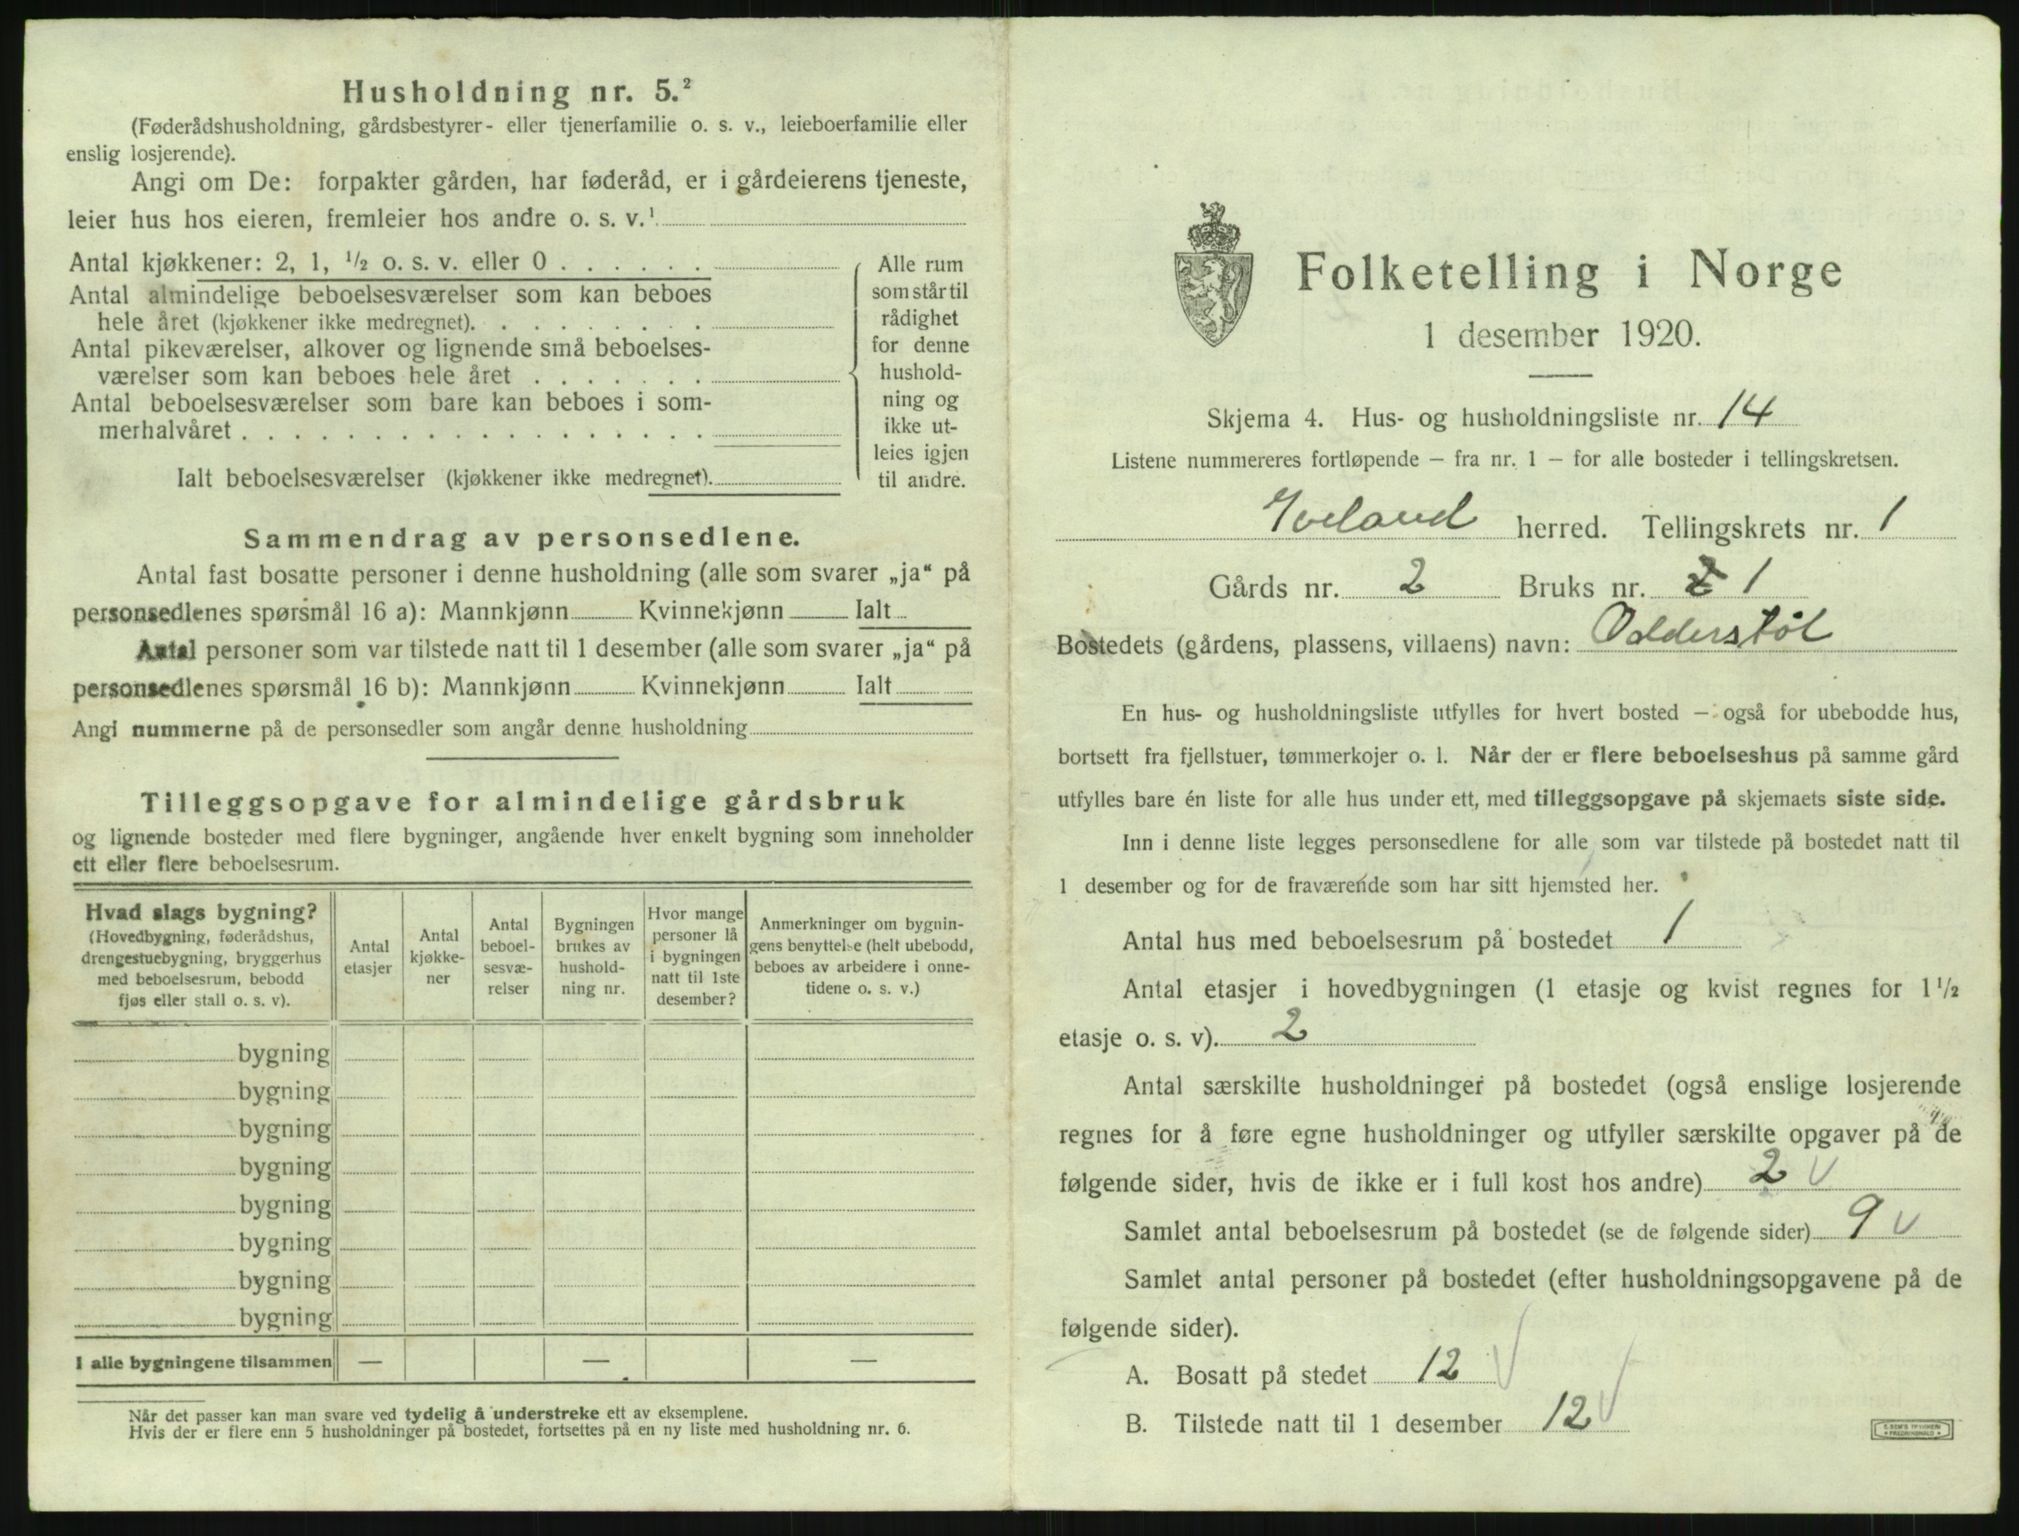 Husholdning nr. 5.²
(Føderådshusholdning, gårdsbestyrer- eller tjenerfamilie o. s. v., leieboerfamilie eller
enslig losjerende).
Angi om De: forpakter gården, har føderåd, er i gårdeierens tjeneste,
leier hus hos eieren, fremleier hos andre o. s. v.¹
Antal kjøkkener: 2, 1, ½ o. s. v. eller 0 . . . . . .
Antal almindelige beboelsesværelser som kan beboes
hele året (kjøkkener ikke medregnet). . . . . . . . .
Antal pikeværelser, alkover og lignende små beboelses-
værelser som kan beboes hele året . . . . . . .
Antal beboelsesværelser som bare kan beboes i som-
merhalvåret . . . . . . . . . . . . . . . . . .
Ialt beboelsesværelser (kjøkkener ikke medregnet).
Alle rum
som står til
rådighet
for denne
hushold-
ning og
ikke ut-
leies igjen
til andre.
Sammendrag av personsedlene.
Antal fast bosatte personer i denne husholdning (alle som svarer „ja“ på
personsedlenes spørsmål 16 a): Mannkjønn Kvinnekjønn Ialt
Antal personer som var tilstede natt til 1 desember (alle som svarer „ja“ på
personsedlenes spørsmål 16 b): Mannkjønn Kvinnekjønn Ialt
Angi nummerne på de personsedler som angår denne husholdning
Tilleggsopgave for almindelige gårdsbruk
og lignende bosteder med flere bygninger, angående hver enkelt bygning som inneholder
ett eller flere beboelsesrum.
Hvad slags bygning?
(Hovedbygning, føderådshus,
drengestuebygning, bryggerhus
med beboelsesrum, bebodd
fjøs eller stall o. s. v).
Antal
etasjer
Antal
kjøkke-
ner
Antal
beboel-
sesvæ-
relser
Bygningen
brukes av
hushold-
ning nr.
Hvor mange
personer lå
i bygningen
natt til 1ste
desember?
Anmerkninger om bygnin-
gens benyttelse (helt ubebodd,
beboes av arbeidere i onne-
tidene o. s. v.)
bygning
bygning
bygning
bygning
bygning
bygning
bygning
bygning
I alle bygningene tilsammen — — —
Når det passer kan man svare ved tydelig å understreke ett av eksemplene.
Hvis der er flere enn 5 husholdninger på bostedet, fortsettes på en ny liste med husholdning nr. 6.
Folketelling i Norge
1 desember 1920.
Skjema 4. Hus- og husholdningsliste nr. 14
Listene nummereres fortløpende – fra nr. 1 – for alle bosteder i tellingskretsen.
Iveland herred. Tellingskrets nr. 1
Gårds nr. 2 Bruks nr. 2 1
Bostedets (gårdens, plassens, villaens) navn: Odderstøl
En hus- og husholdningsliste utfylles for hvert bosted – også for ubebodde hus,
bortsett fra fjellstuer, tømmerkojer o. l. Når der er flere beboelseshus på samme gård
utfylles bare én liste for alle hus under ett, med tilleggsopgave på skjemaets siste side.
Inn i denne liste legges personsedlene for alle som var tilstede på bostedet natt til
1 desember og for de fraværende som har sitt hjemsted her.
Antal hus med beboelsesrum på bostedet 1
Antal etasjer i hovedbygningen (1 etasje og kvist regnes for 1½
etasje o. s. v). 2
Antal særskilte husholdninger på bostedet (også enslige losjerende
regnes for å føre egne husholdninger og utfyller særskilte opgaver på de
følgende sider, hvis de ikke er i full kost hos andre) 2 v
Samlet antal beboelsesrum på bostedet (se de følgende sider) 9 v
Samlet antal personer på bostedet (efter husholdningsopgavene på de
følgende sider).
A. Bosatt på stedet 12 v
B. Tilstede natt til 1 desember 12 v